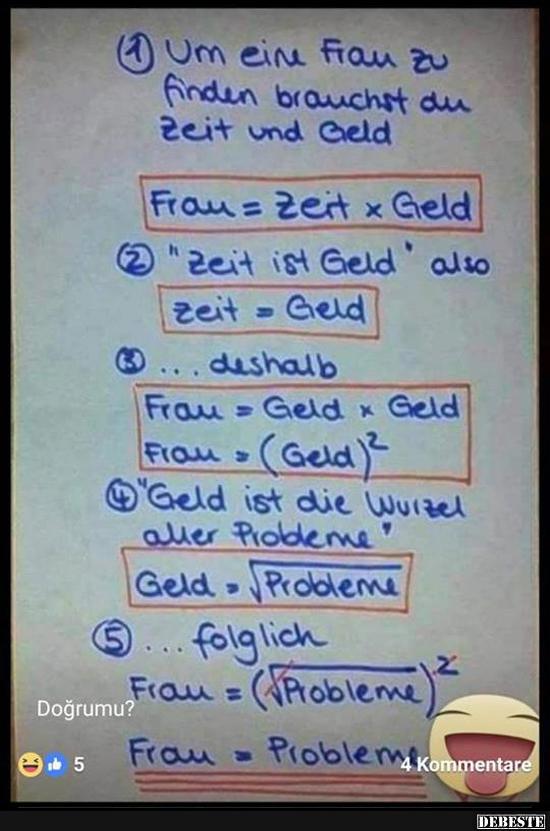 ① Um eine Frau zu
finden brauchst du
Zeit und Geld
Frau = Zeit x Geld
② "Zeit ist Geld" also
Zeit = Geld
③ ... deshalb
Frau = Geld x Geld
Frau = (Geld)²
④ "Geld ist die Wurzel
aller Probleme"
Geld = √Probleme
⑤ ... folglich
Frau = (√Probleme)²
Doğrumu?
Frau = Probleme
5
4 Kommentare
DEBESTE